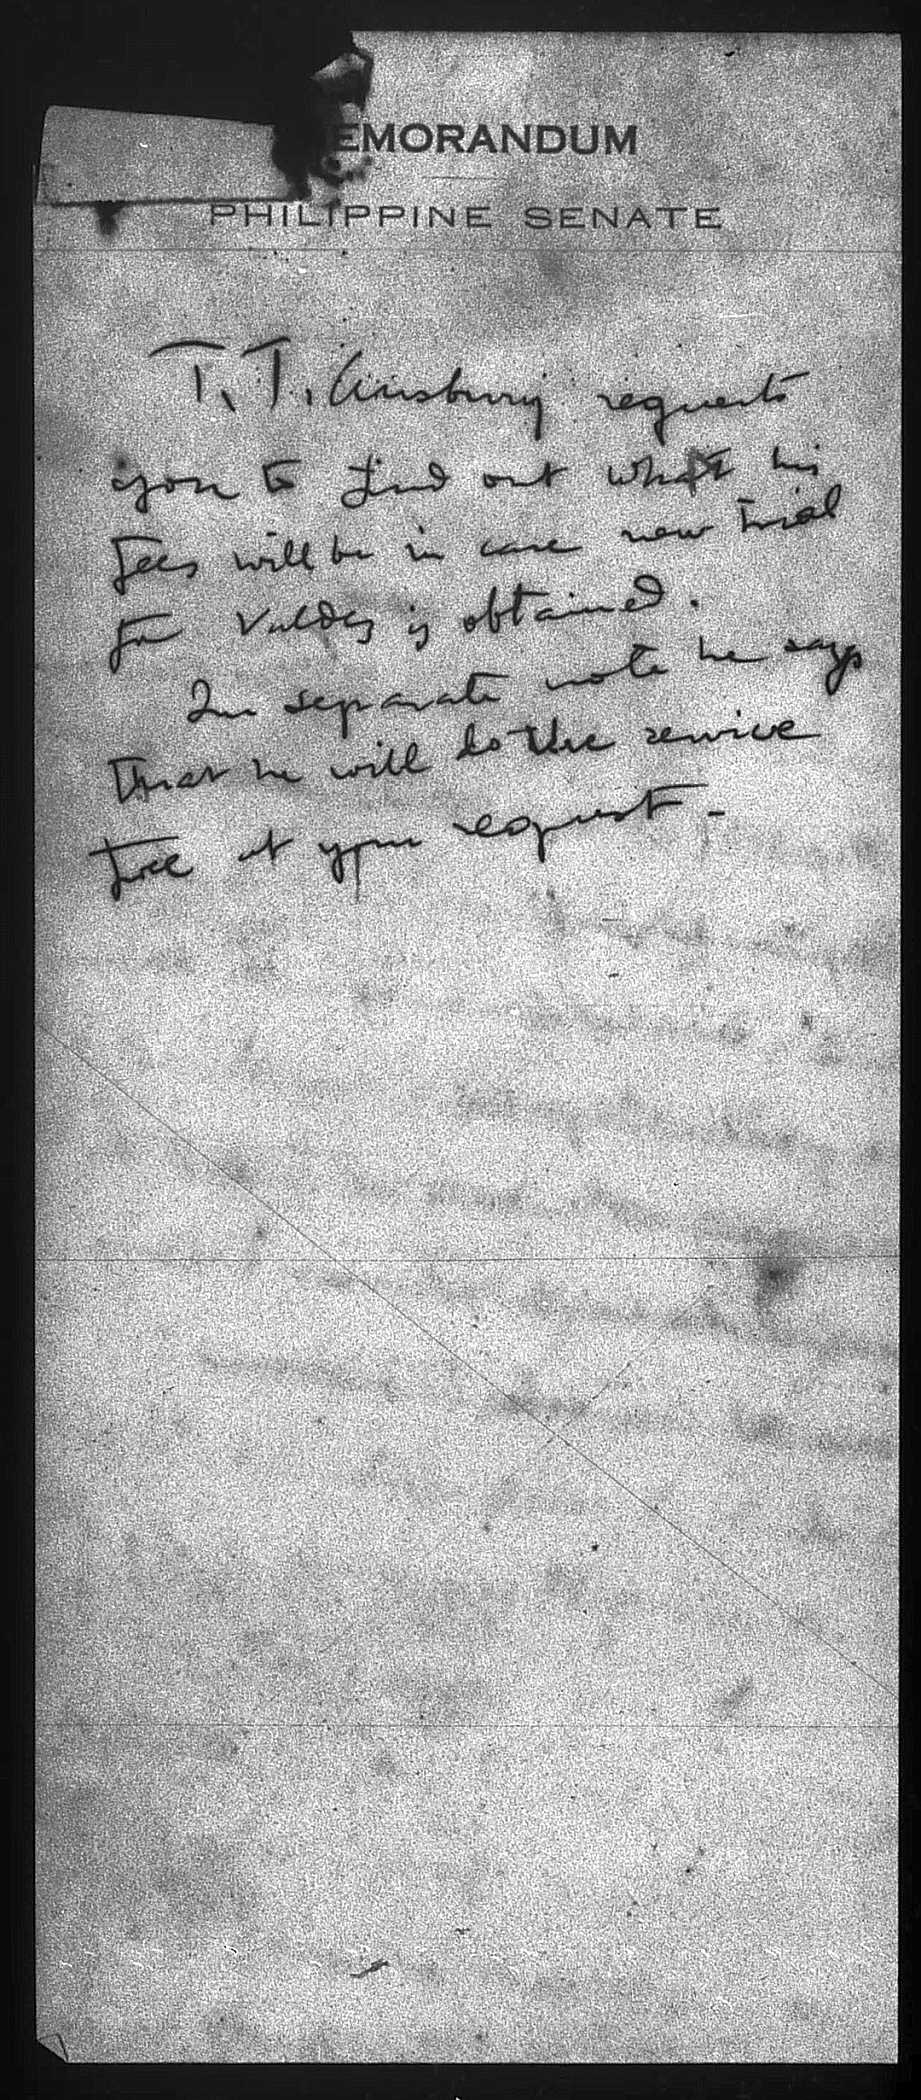 EMORANDUM
PHILIPPINE SENATE
T. T. Ainsbury requests
you to find out what his
fees will be in case new trial
for Valdes is obtained.
In separate note he says
that he will do the service
free at your request -